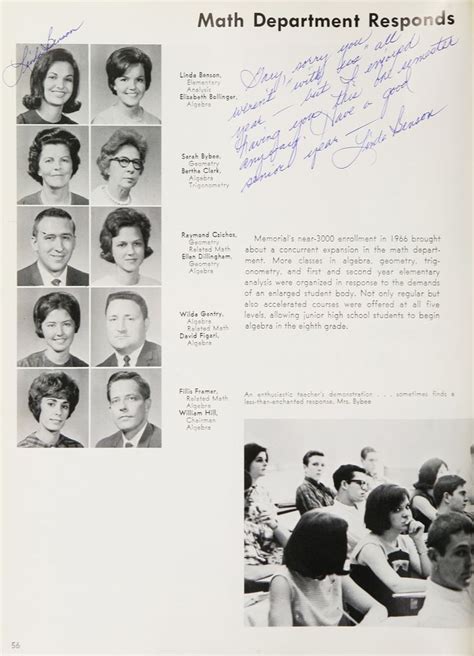 Math Department Responds
Linda Benson
Gary, sorry you
weren't "with us" all
year — but I enjoyed
having you this one semester
anyway. Have a good
senior year —
Linda Benson
Linda Benson,
Elementary
Analysis
Elizabeth Bollinger,
Algebra
Sarah Bybee,
Geometry
Bertha Clark,
Algebra
Trigonometry
Raymond Czichos,
Geometry
Related Math
Ellen Dillingham,
Geometry
Algebra
Wilda Gentry,
Algebra
Related Math
David Figari,
Algebra
Fillis Framer,
Related Math
Algebra
William Hill,
Chairman
Algebra
Memorial's near-3000 enrollment in 1966 brought
about a concurrent expansion in the math depart-
ment. More classes in algebra, geometry, trig-
onometry, and first and second year elementary
analysis were organized in response to the demands
of an enlarged student body. Not only regular but
also accelerated courses were offered at all five
levels, allowing junior high school students to begin
algebra in the eighth grade.
An enthusiastic teacher's demonstration . . . sometimes finds a
less-than-enchanted response. Mrs. Bybee
56